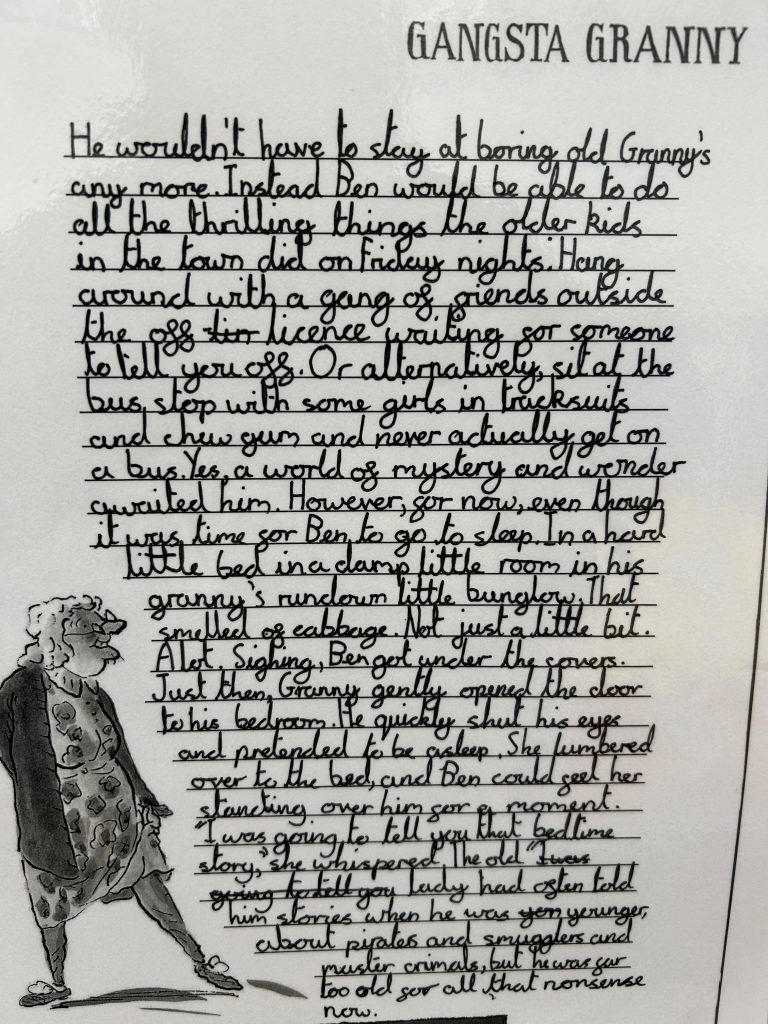 GANGSTA GRANNY
He wouldn't have to stay at boring old Granny's
any more. Instead Ben would be able to do
all the thrilling things the older kids
in the town did on Friday nights. Hang
around with a gang of friends outside
the off lin licence waiting for someone
to tell you off. Or alternatively, sit at the
bus stop with some girls in tracksuits
and chew gum and never actually get on
a bus. Yes, a world of mystery and wonder
awaited him. However, for now, even though
it was time for Ben to go to sleep. In a hard
little bed in a damp little room in his
granny's rundown little bunglow. That
smelled of cabbage. Not just a little bit.
A lot. Sighing, Ben got under the covers.
Just then, Granny gently opened the door
to his bedroom. He quickly shut his eyes
and pretended to be asleep. She lumbered
over to the bed, and Ben could feel her
standing over him for a moment.
"I was going to tell you that bedtime
story," she whispered. The old "I was
going to tell you lady had often told
him stories when he was yon younger,
about pirates and smugglers and
master crimals, but he was far
too old for all that nonsense
now.